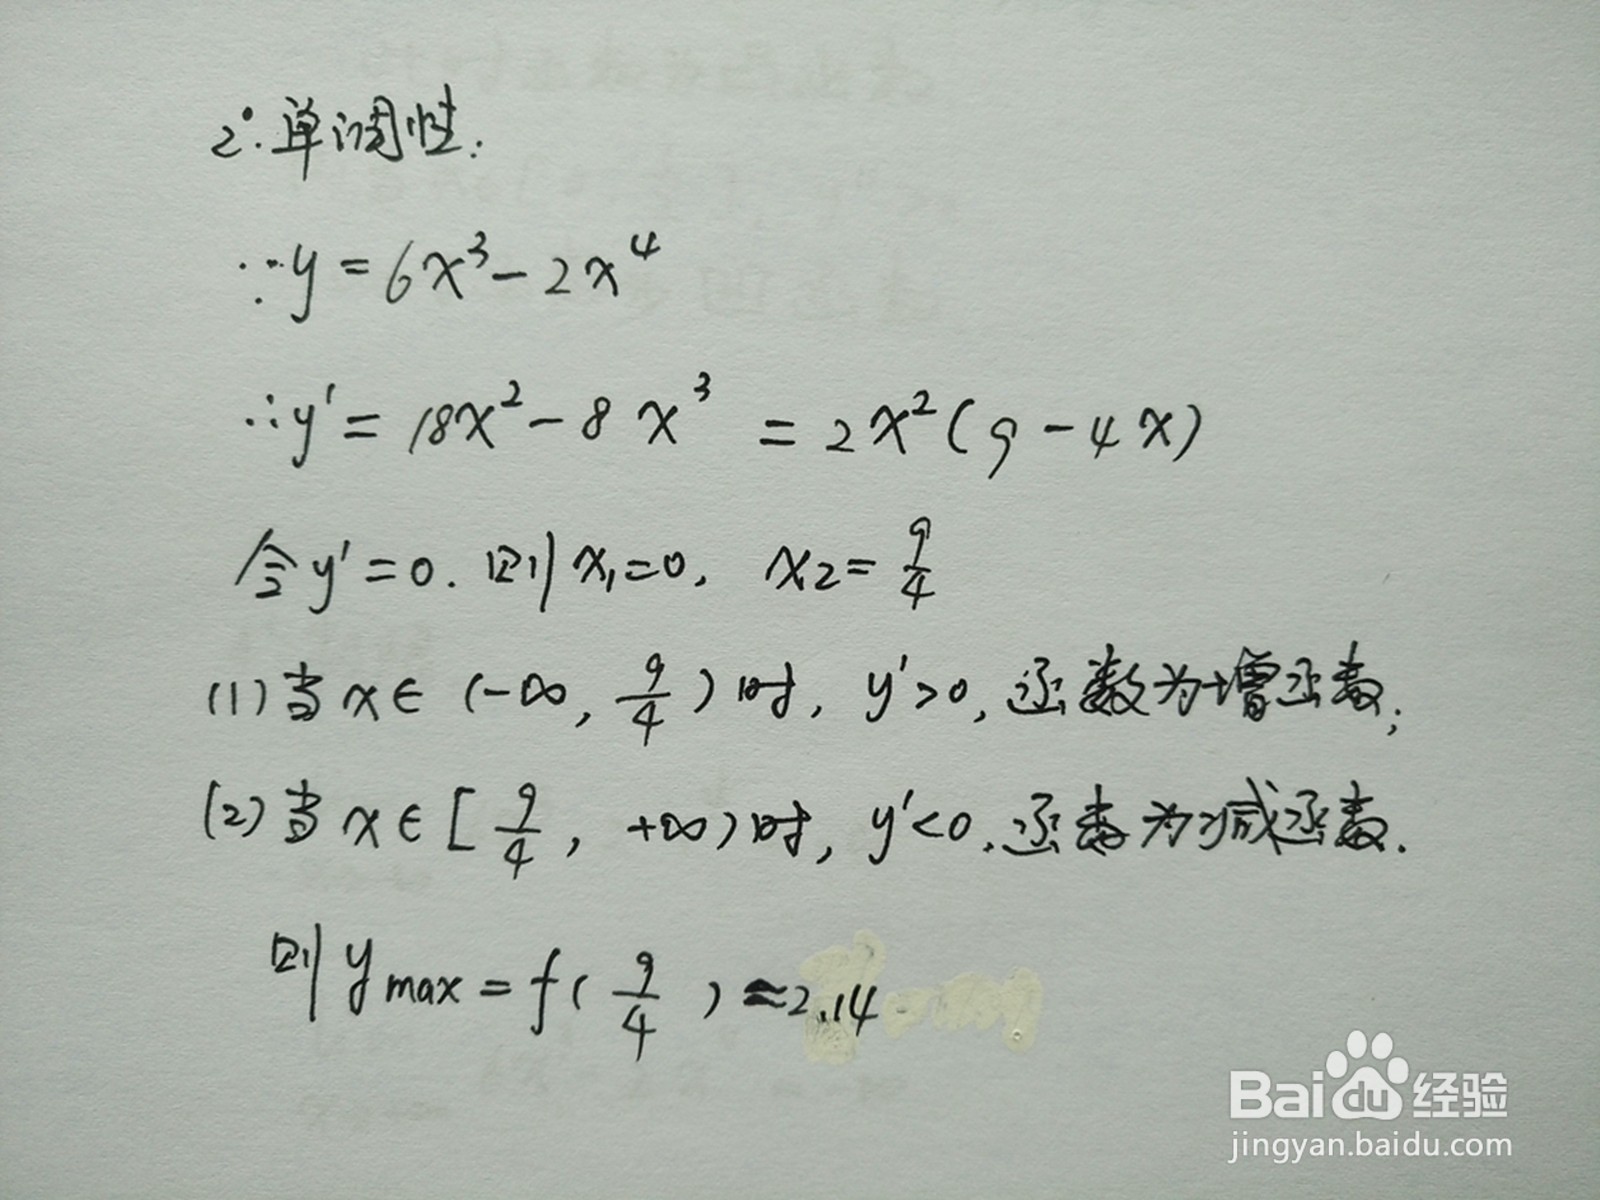 2°.单调性:
∵y=6x³-2x⁴
∴y'=18x²-8x³=2x²(9-4x)
令y'=0.则x₁=0, x₂=9/4
(1)当x∈(-∞,9/4)时, y'>0,函数为增函数;
(2)当x∈[9/4,+∞)时, y'<0.函数为减函数.
则ymax=f(9/4)≈2.14
Baidu经验
jingyan.baidu.com